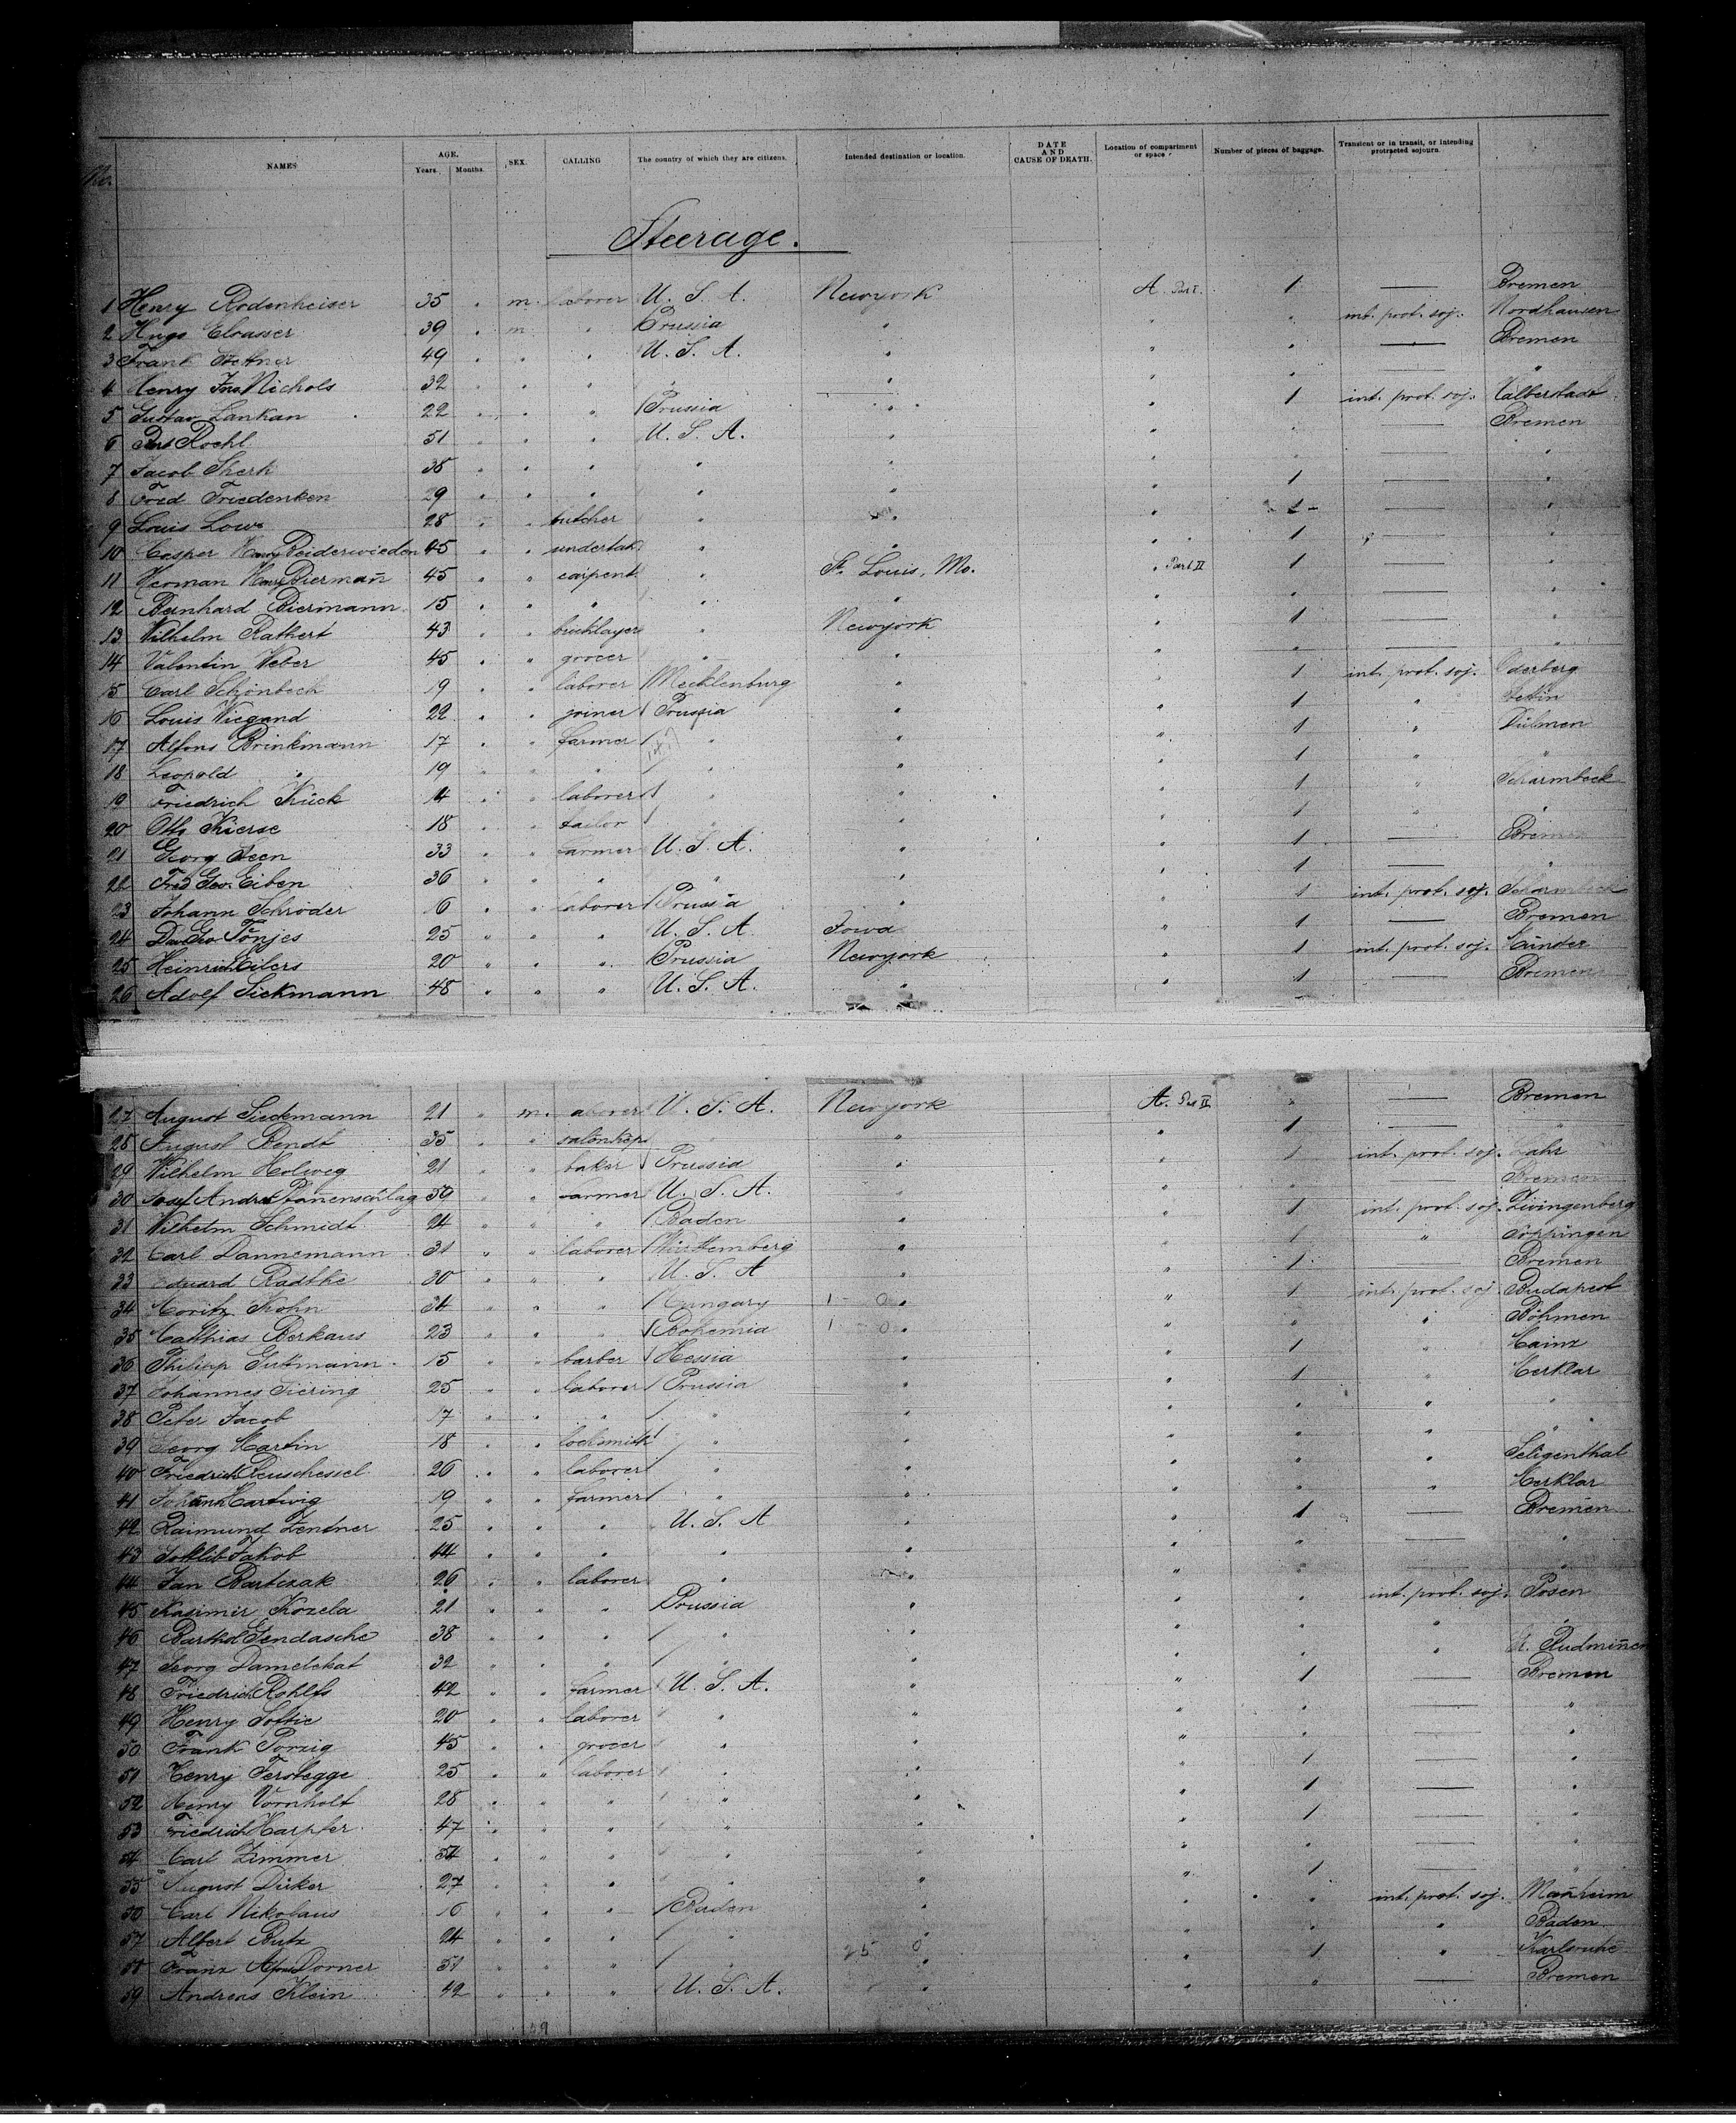 No. NAMES AGE. Years. Months. SEX. CALLING The country of which they are citizens. Intended destination or location. DATE AND CAUSE OF DEATH. Location of compartment or space Number of pieces of baggage. Transient or in transit, or intending protracted sojourn.
Steerage.
1 Henry Rodenheiser 35 " m. laborer U. S. A. Newyork A. Part I. 1 — Bremen
2 Hugo Eloasser 39 " m " Prussia " " " int. prot. soj. Nordhausen
3 Frank 49 " " " U. S. A. " " " — Bremen
4 Henry Nichols 32 " " " " " " " — "
5 Gustav Lankan 22 " " " Prussia " " 1 int. prot. soj. Halberstadt
6 Roehl 51 " " " U. S. A. " " " — Bremen
7 Jacob Sherk 38 " " " " " " " — "
8 Fred Friedenken 29 " " " " " " 1 — "
9 Louis Low 28 " " butcher " " " 1 — "
10 Casper Henry Beiderwieden 45 " " undertak " " " 1 — "
11 Herman Henry Biermañ 45 " " carpent. " St. Louis, Mo. " Part II 1 — "
12 Bernhard Biermann 15 " " " " " " " — "
13 Wilhelm Rathert 43 " " bricklayer " Newyork " 1 — "
14 Valentin Weber 45 " " grocer " " " " — "
15 Carl Schönbeck 19 " " laborer Mecklenburg " " 1 int. prot. soj. Oderberg
16 Louis Wiegand 22 " " joiner Prussia " " 1 " Stettin
17 Alfons Brinkmann 17 " " farmer " " " 1 " Dülmen
18 Leopold " 19 " " " " " " 1 " "
19 Friedrich Kück 14 " " laborer " " " 1 " Scharmbeck
20 Otto Kierse 18 " " tailor " " " 1 " "
21 Georg 33 " " farmer U. S. A. " " 1 — Bremen
22 Fred Geo. Eiben 36 " " " " " " 1 — "
23 Johann Schröder 16 " " laborer Prussia " " 1 int. prot. soj. Scharmbeck
24 Geo. Tönjes 25 " " " U. S. A. Iowa " 1 — Bremen
25 Heinrich Eilers 20 " " " Prussia Newyork " 1 int. prot. soj. Münder
26 Adolf Sieckmann 48 " " " U. S. A. " " 1 — Bremen
27 August Sieckmann 21 " m. laborer U. S. A. Newyork A. Part II " — Bremen
28 August Bendt 35 " " salonkep " " " 1 — "
29 Wilhelm Holweg 21 " " baker Prussia " " 1 int. prot. soj. Lahr
30 Josef Andr. 50 " " farmer U. S. A. " " " — Bremen
31 Wilhelm Schmidt 24 " " " Baden " " 1 int. prot. soj. Zwingenberg
32 Carl Dannemann 31 " " laborer Württemberg " " 1 " Göppingen
33 Eduard Radtke 30 " " " U. S. A " " 1 — Bremen
34 Moritz Kohn 34 " " " Hungary " " 1 int. prot. soj Budapest
35 Matthias Berkaus 23 " " " Bohemia " " " " Böhmen
36 Philipp Gutmann 15 " " barber Hessia " " 1 " Mainz
37 Johannes Siering 25 " " laborer Prussia " " 1 " Herklar
38 Peter Jacob 17 " " " " " " " " "
39 Georg Martin 18 " " locksmith " " " " " "
40 Friedrich Reuschessel 26 " " laborer " " " " " Seligenthal
41 Johann Hartwig 19 " " farmer " " " " " Herklar
42 Raimund Zentner 25 " " " U. S. A " " 1 — Bremen
43 Gottlib Jakob 44 " " " " " " " — "
44 Jan Bartczak 26 " " laborer " " " " — "
45 Kasimir Kozela 21 " " " Prussia " " " int. prot. soj. Posen
46 Barthol Gendasche 38 " " " " " " " " "
47 Georg Damelekat 32 " " " " " " " "
48 Friedrich Rohlfs 42 " " farmer U. S. A. " " 1 — Bremen
49 Henry Softie 20 " " laborer " " " " — "
50 Frank Porzig 45 " " grocer " " " " — "
51 Henry Terstegge 25 " " laborer " " " 1 — "
52 Henry Vornholt 28 " " " " " " 1 — "
53 Friedrich Harpfer 47 " " " " " " 1 — "
54 Carl Zimmer 54 " " " " " " " — "
55 August Dirker 27 " " " " " " 1 — "
56 Carl Nikolaus 16 " " " Baden " " " int. prot. soj. Mañheim
57 Albert Butz 24 " " " " " " " " Baden
58 Franz Dorner 51 " " " " " " 1 " Karlsruhe
59 Andreas Klein 42 " " " U. S. A. " " " — Bremen